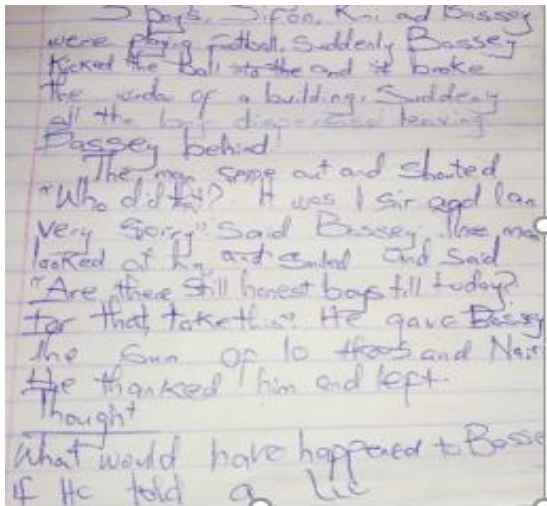 3 boys, Sifon, Kni and Bassey
were playing football. Suddenly Bassey
Kicked the ball to the and it broke
the window of a building. Suddenly
all the boys disappeared leaving
Bassey behind
The man came out and shouted
"Who did that? It was I sir and I am
very sorry" said Bassey. The man
looked at him and smiled and said
"Are there still honest boys till today?
for that, take this". He gave Bassey
the sum of 10 thousand Nair
He thanked him and left.
Thought
What would have happened to Basse
if He told a lie